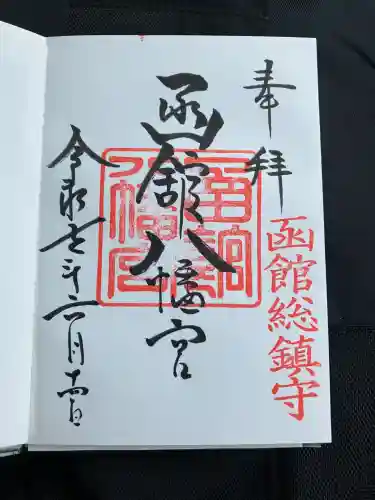 奉拝
函館総鎮守
函館八幡宮
令和七年六月十四日